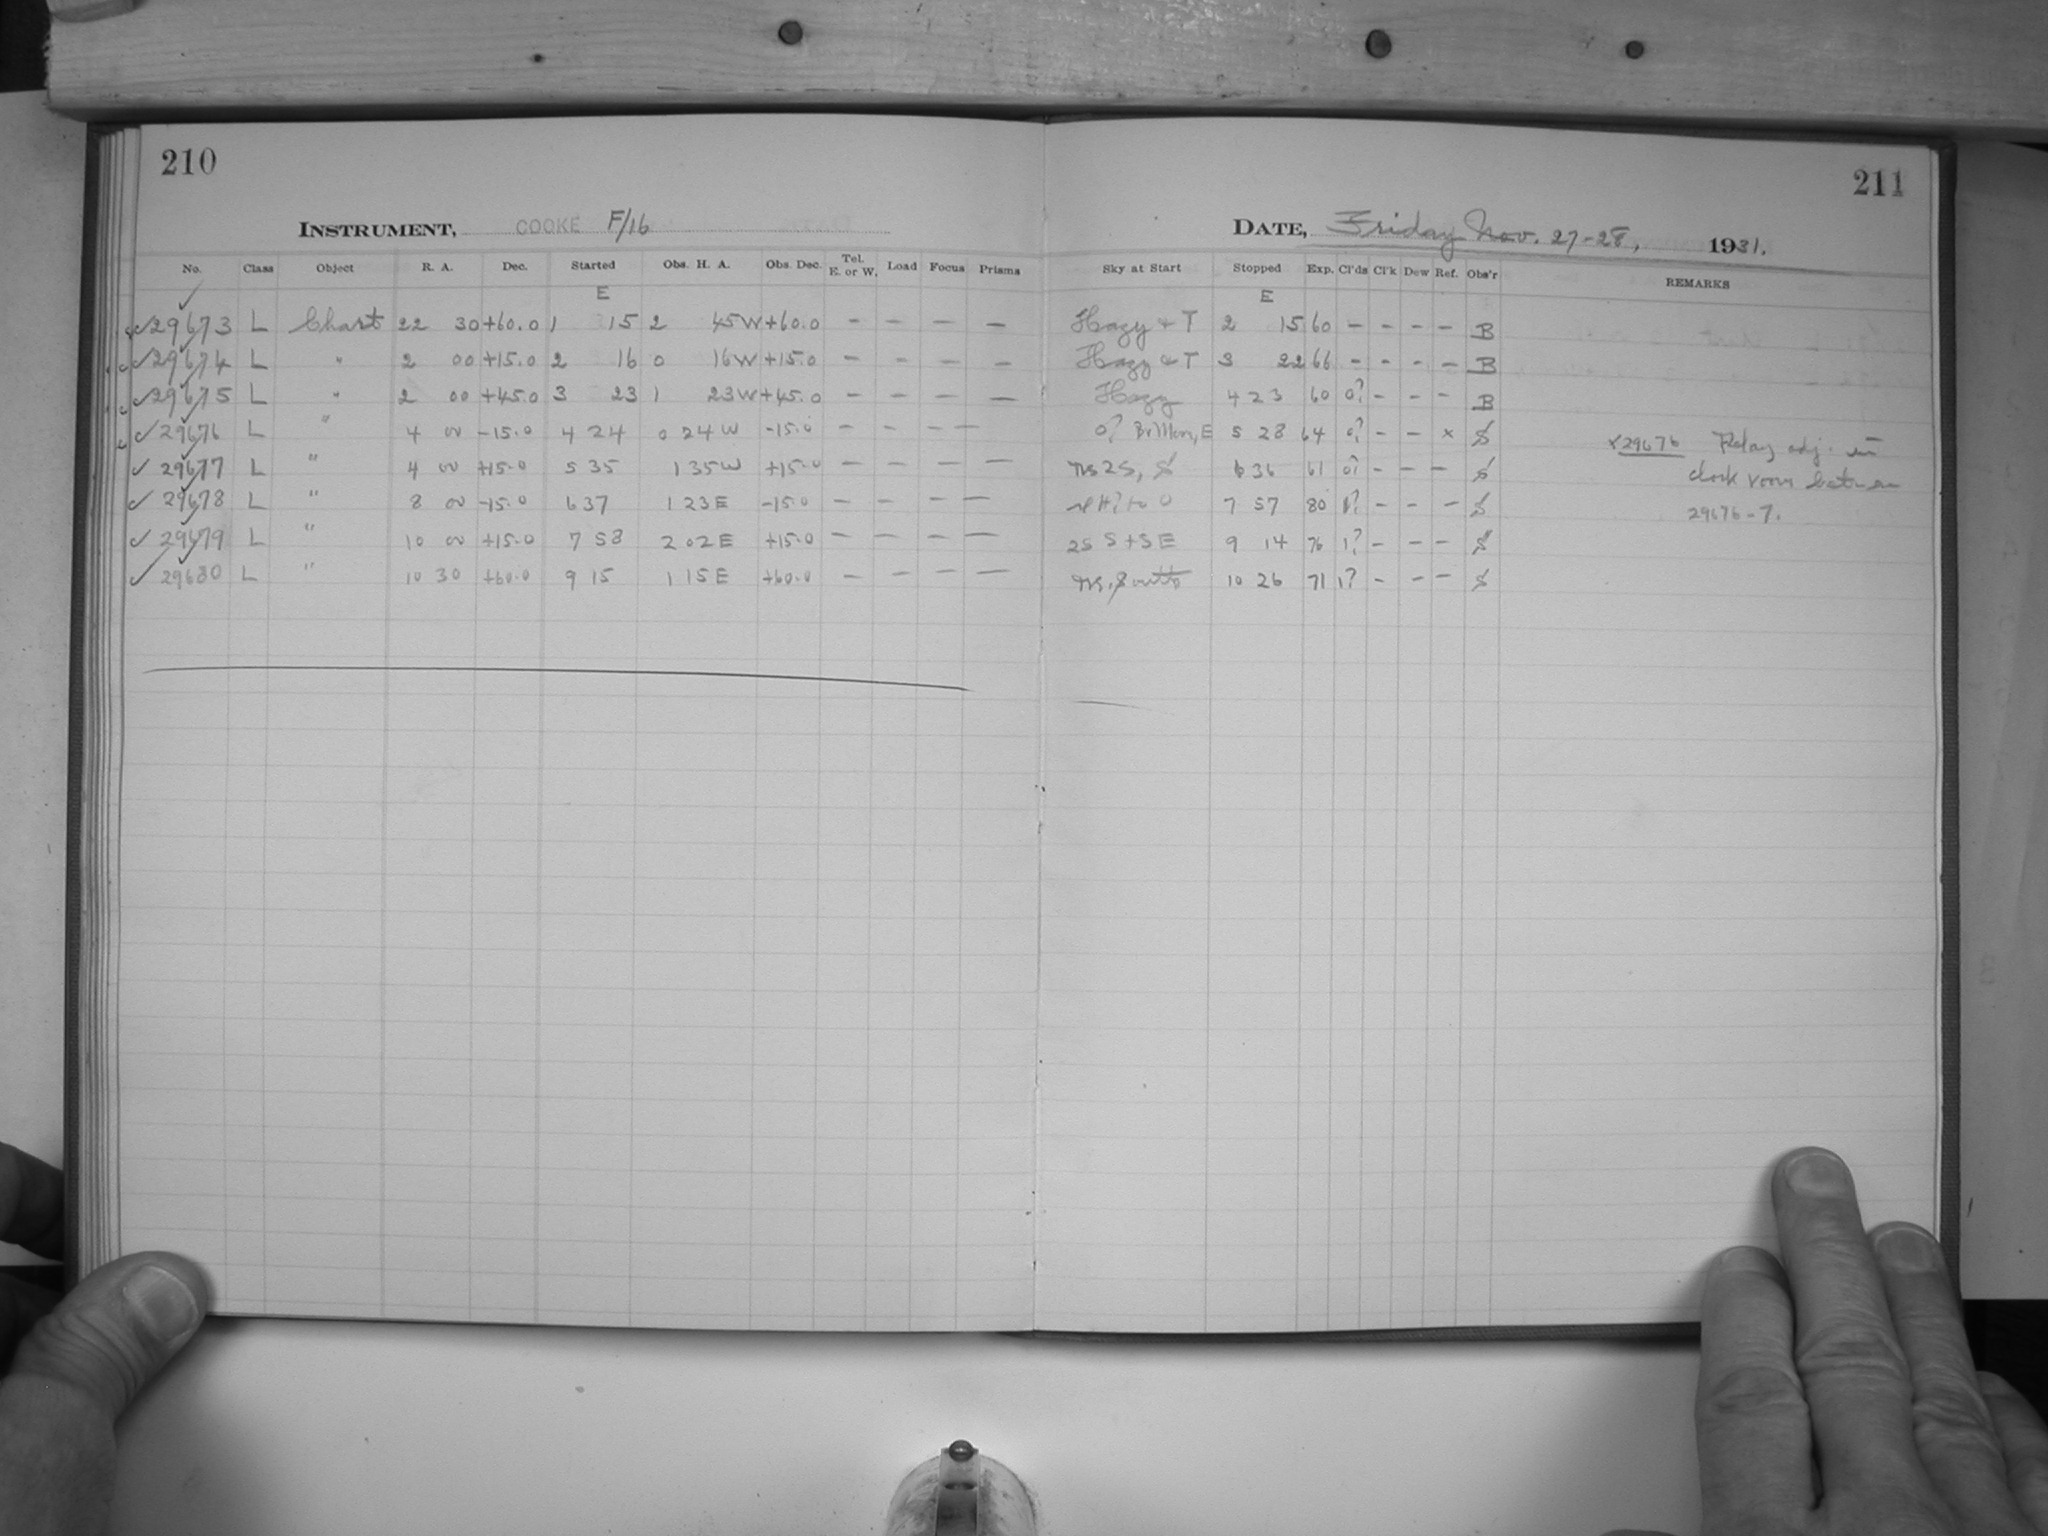 210
211
INSTRUMENT, COOKE F/16
DATE, Friday Nov. 27-28, 1931.
No. Class Object R. A. Dec. Started Obs. H. A. Obs. Dec. Tel. E. or W. Load Focus Prisms Sky at Start Stopped Exp. Cl'ds Cl'k Dew Ref. Obs'r REMARKS
E E
29673 L Chart 22 30 +60.0 1 15 2 45W +60.0 - - - - Hazy + T 2 15 60 - - - - B
29674 L " 2 00 +15.0 2 16 0 16W +15.0 - - - - Hazy & T 3 22 66 - - - - B
29675 L " 2 00 +45.0 3 23 1 23W +45.0 - - - - Hazy 4 23 60 0? - - - B
29676 L " 4 00 -15.0 4 24 0 24W -15.0 - - - - 0? Br Moon, E 5 28 64 0? - - x S x29676 Relay adj. in
29677 L " 4 00 +15.0 5 35 1 35W +15.0 - - - - 2S, S 6 36 61 0? - - - S clock room between
29678 L " 8 00 -15.0 6 37 1 23E -15.0 - - - - 7 57 80 1? - - - S 29676-7.
29679 L " 10 00 +15.0 7 58 2 02E +15.0 - - - - 2S S+SE 9 14 76 1? - - - S
29680 L " 10 30 +60.0 9 15 1 15E +60.0 - - - - 10 26 71 1? - - - S